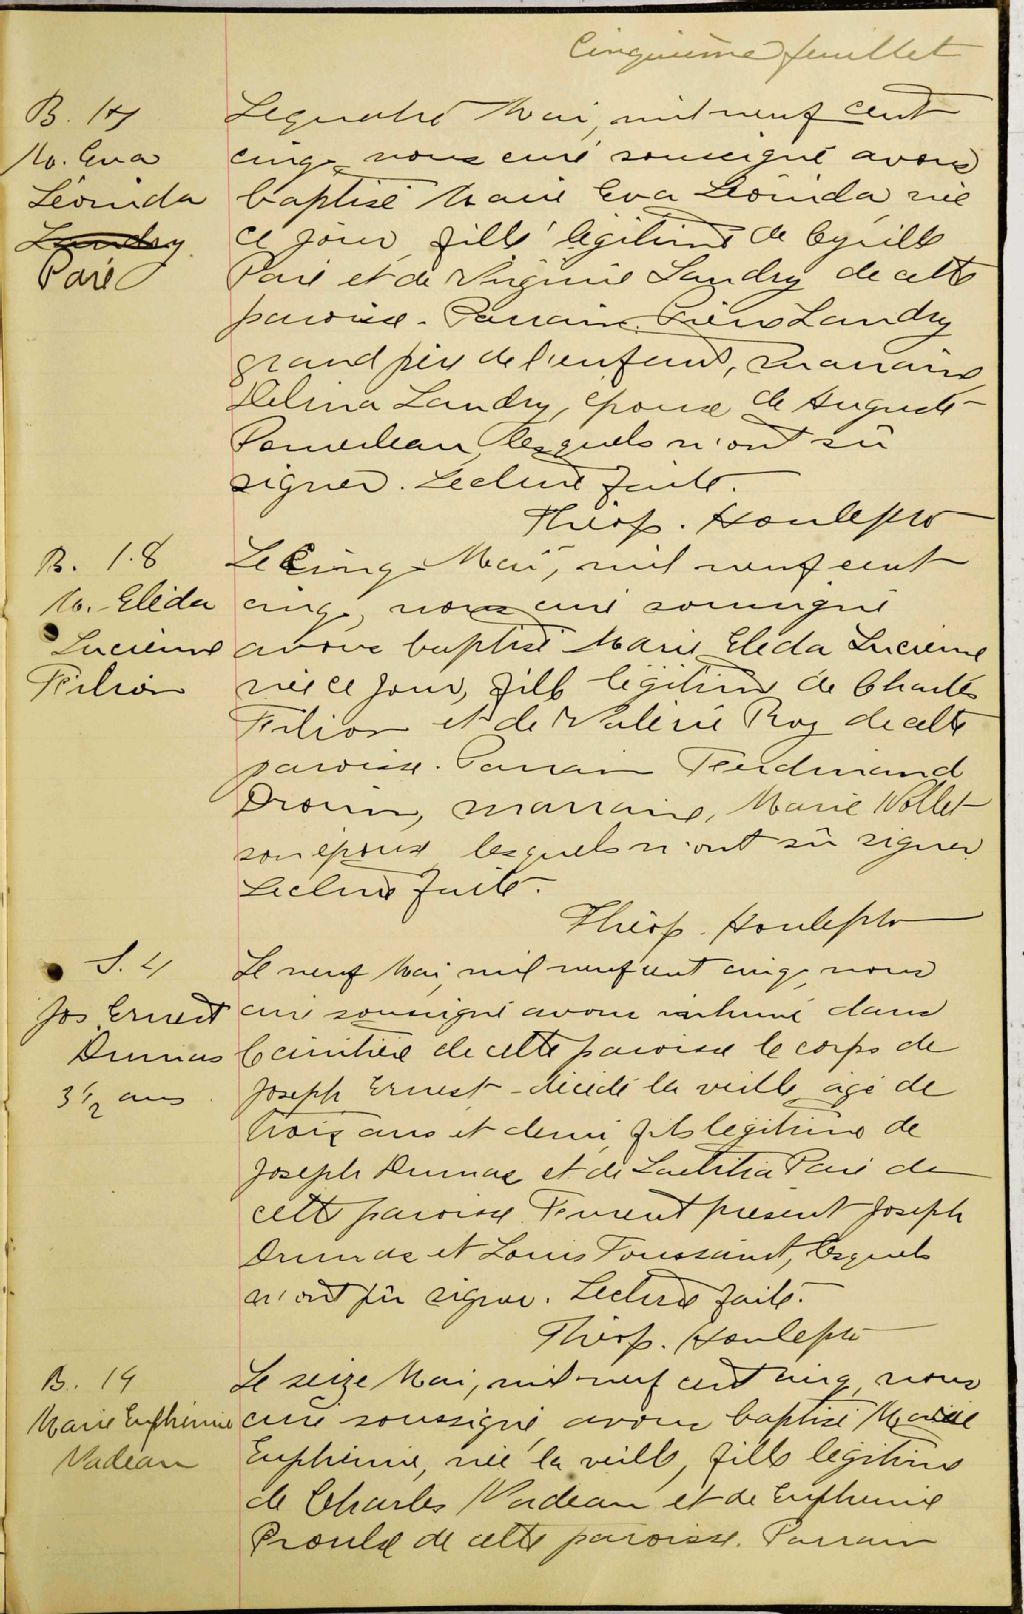 Cinquième feuillet
B. 17
M. Eva
Léonida
Landry
Paré
Le quatre Mai, mil neuf cent
cinq, nous curé soussigné avons
baptisé Marie Eva Léonida, née
ce jour, fille légitime de Cyrille
Paré et de Virginie Landry de cette
paroisse. Parrain, Landry
grand père de l'enfant, marraine,
Délina Landry, épouse de Auguste
Pomerleau, lesquels n'ont sû
signer. Lecture faite.
Théop. Houle ptre
B. 18
M. Eléda
Lucienne
Filion
Le Cinq Mai, mil neuf cent
cinq, nous curé soussigné
avons baptisé Marie Eleda Lucienne
née ce jour, fille légitime de Charles
Filion et de Valérie Roy de cette
paroisse. Parrain Ferdinand
Drouin, marraine, Marie Nollet
son épouse lesquels n'ont sû signer
Lecture faite.
Théop. Houle ptre
S. 4
Jos Ernest
Dumas
3 1/2 ans
Le neuf Mai, mil neuf cent cinq, nous
curé soussigné avons inhumé dans
le cimetière de cette paroisse le corps de
Joseph Ernest décédé la veille agé de
trois ans et demi, fils légitime de
Joseph Dumas et de Laetitia Paré de
cette paroisse. Furent présent Joseph
Dumas et Louis Toussaint, lesquels
n'ont pu signer. Lecture faite.
Théop. Houle ptre
B. 19
Marie Euphémie
Nadeau
Le seize Mai, mil neuf cent cinq, nous
curé soussigné, avons baptisé Marie
Euphémie, née la veille, fille légitime
de Charles Nadeau et de Euphémie
Proulx de cette paroisse. Parrain